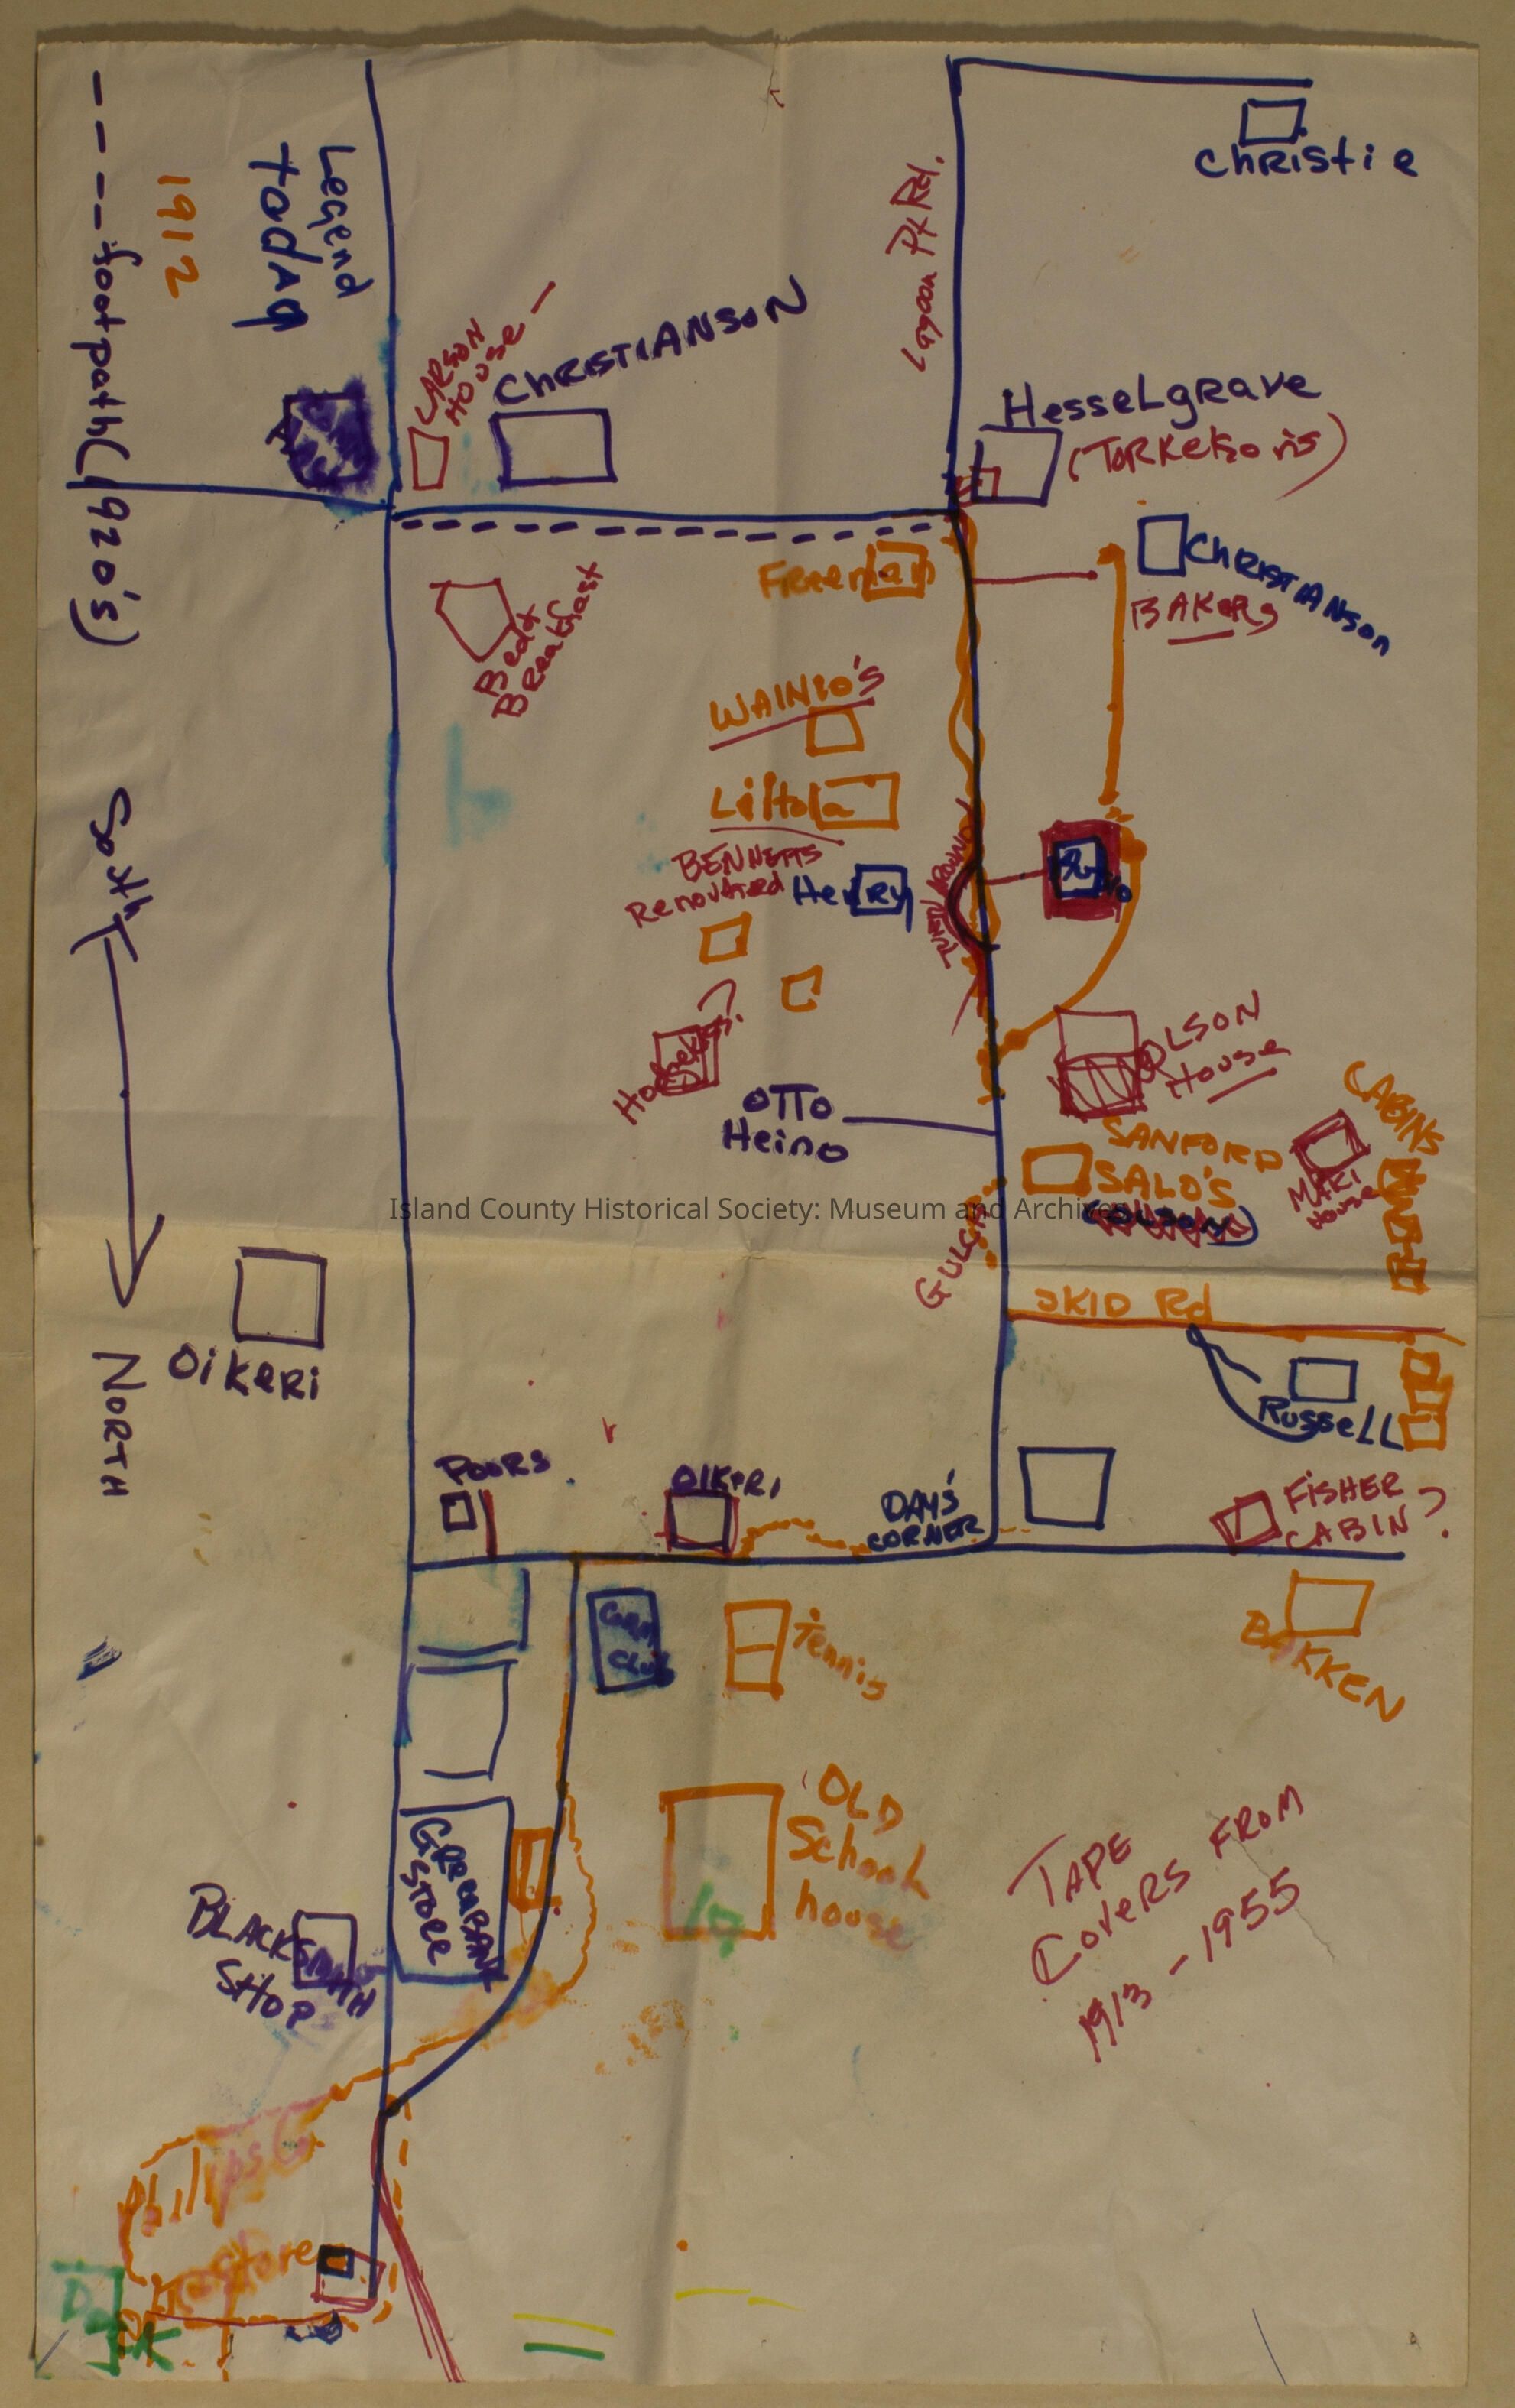 Legend
today
1912
----footpath (1920's)
Christie
Lagoon Pt Rd.
CARSON
HOUSE
CHRISTIANSON
HesseLgRAVe
Freeman
CHRISTIANSon
BAKeRs
Bed &
Breakfast
WAINIO'S
Liltola
BENNETTS
Renovated
HenRy
TURN AROUND
OLSON
House
OTTO
Heino
CABINS
SANFORD
SALO'S
MAKI
House
Island County Historical Society: Museum and Archives
GULCH
South
NORTH
SKID Rd
Oikeri
RusseLL
POORS
OIKERI
DAY'S
CORNER
FISHER
CABIN?
Comm
Club
Tennis
BAKKEN
OLD
School
house
GReenBANK
STORE
BLACKSMITH
SHOP
TAPE
COVERS FROM
1913-1955
Phillips
Store